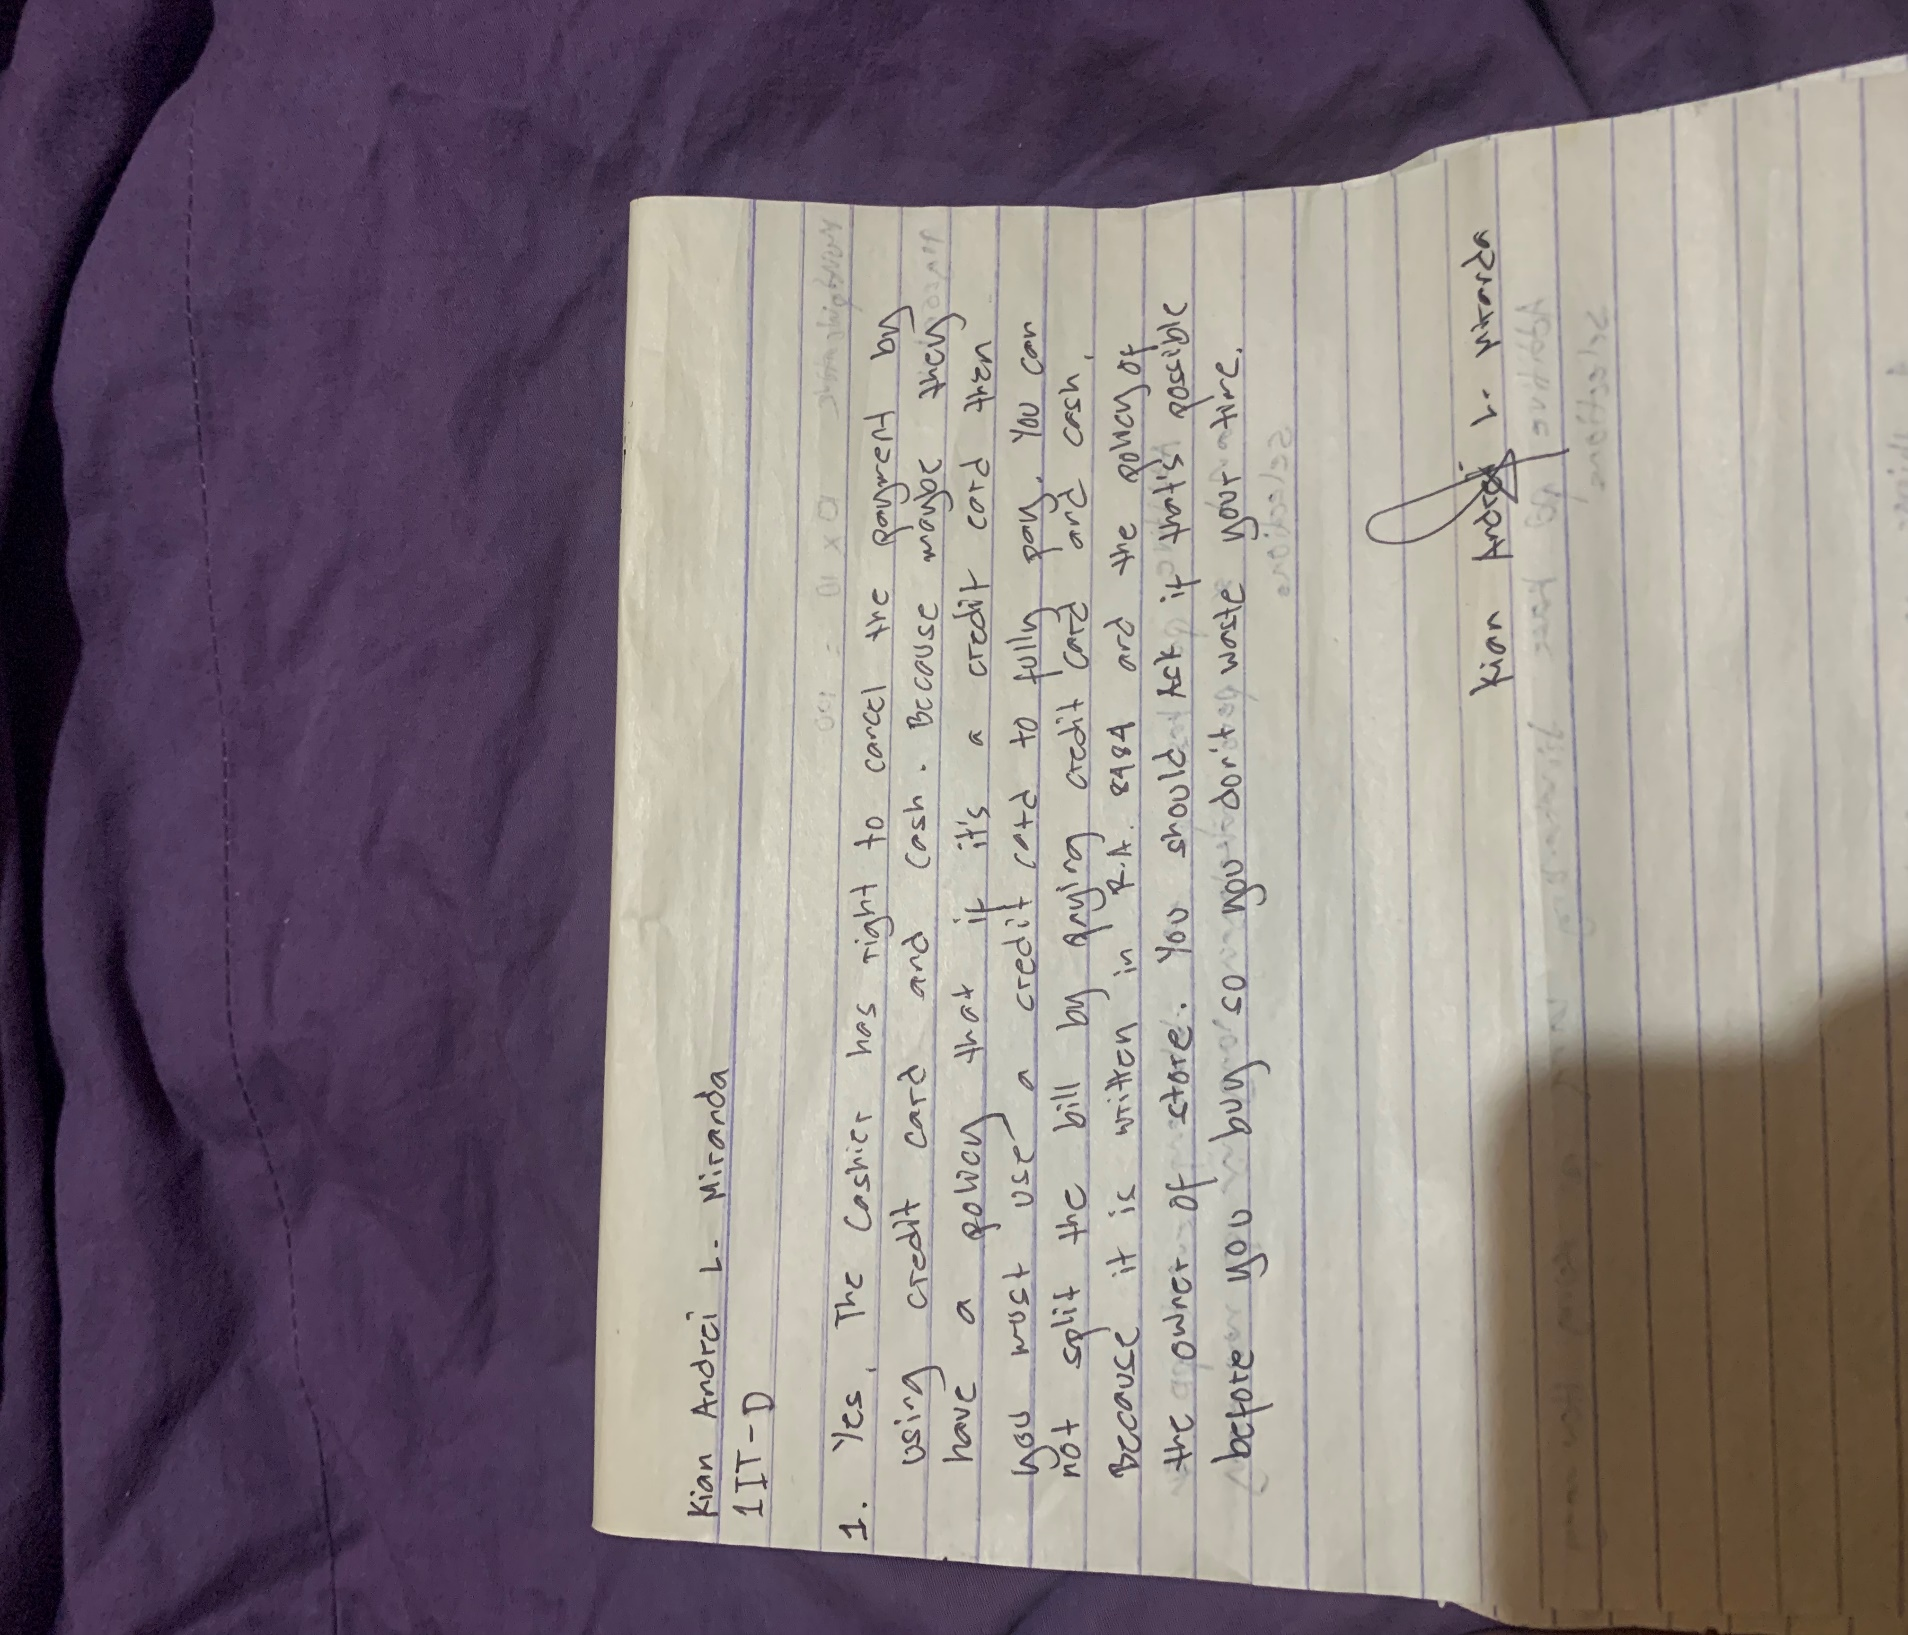 Kian Andrei L. Miranda
1IT-D
1. Yes, The Cashier has right to cancel the payment by
using credit card and cash. Because maybe they
have a policy that if it's a credit card then
you must use a credit card to fully pay. You can
not split the bill by paying credit card and cash,
Because it is written in R.A. 8484 and the policy of
the owner of store. You should Ask if that's possible
before you buy so you don't waste your time.
Kian Andrei L. Miranda